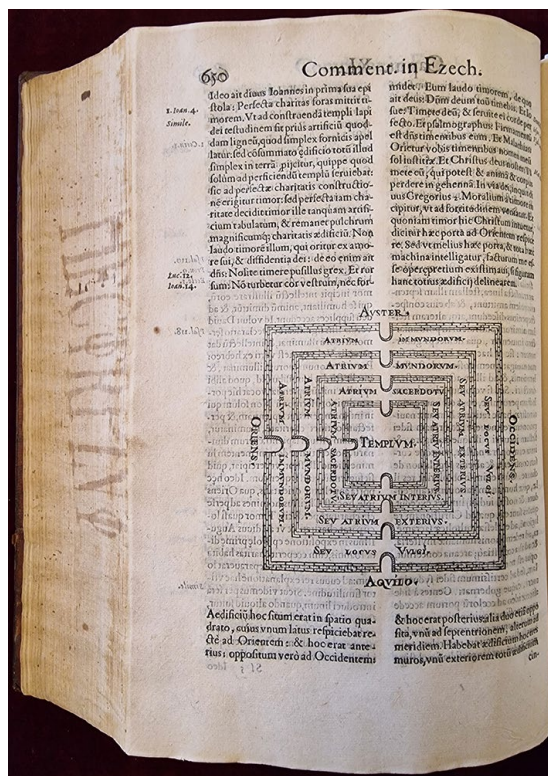 650
Comment. in Ezech.
1. Ioan. 4.
Simile.
Luc. 12.
Ioan. 14.
Ideo ait diuus Ioannes in prima sua epi
stola: Perfecta charitas foras mittit ti-
morem. Vt ad construendā templi lapi
dei testudinem sit prius artificiū quod-
dam ligneū, quod simplex fornicis apel
latur: sed cōsummato ędificio totū illud
simplex in terrā pijcitur, quippe quod
solum ad perficiendū templū seruiebat:
sic ad perfectæ charitatis constructio-
nē erigitur timor: sed perfecta iam cha-
ritate decidit timor ille tanquam artifi-
cium tabulatum, & remanet pulchrum
magnificumq; charitatis ædificiū. Non
laudo timorē illum, qui oritur ex amo-
re sui, & diffidentia dei: de eo enim ait
dñs: Nolite timere pusillus grex. Et rur
sum: Nō turbetur cor vestrum, nec for-
midet. Eum laudo timorem, de quo
ait deus: Dum deum toū timebis. Et
sue: Timete deū; & seruite ei corde per
fecto. Et psalmographus: Firmamentū
est dñs timentibus eum. Et Malachias
Orietur vobis timentibus nomen meū
sol iustitiæ. Et Christus deus noster: Ti
mete eū, qui potest & animā & corpus
perdere in gehennā. In via dei, inquit
uus Gregorius 2. Moralium à timore in
cipitur, vt ad fortitudinem veniatur. Et
quoniam timor hic Christum intuetur
dicitur hæc porta ad Orientem respice
re. Sed vt melius hæc porta, & tota hæc
machina intelligatur, facturum me es
se operępretium existimaui, si figuram
hanc totius ædificij delinearem.
AVSTER.
ATRIVM IMMVNDORVM.
ATRIVM MVNDORVM.
ATRIVM SACERDOTV
ORIENS.
ATRIVM IMMVNDORVM.
ATRIVM MVNDORVM.
ATRIVM SACERDOT
TEMPLVM.
SEV ATRIVM INTERIVS.
SEV ATRIVM EXTERIVS.
SEV LOCVS VVLGI.
OCCIDENS.
SEV ATRIVM INTERIVS.
SEV ATRIVM EXTERIVS.
SEV LOCVS VVLGI.
AQVILO.
Aedificiū hoc situm erat in spatio qua-
drato, cuius vnum latus respiciebat re-
ctè ad Orientem: & hoc erat ante-
rius: oppositum verò ad Occidentem:
& hoc erat posterius: alia duo erāt oppo
sita, vnū ad septentrionem, alterum ad
meridiem. Habebat ædificium hoc tres
muros, vnū exteriorem totū ædificium
cin-